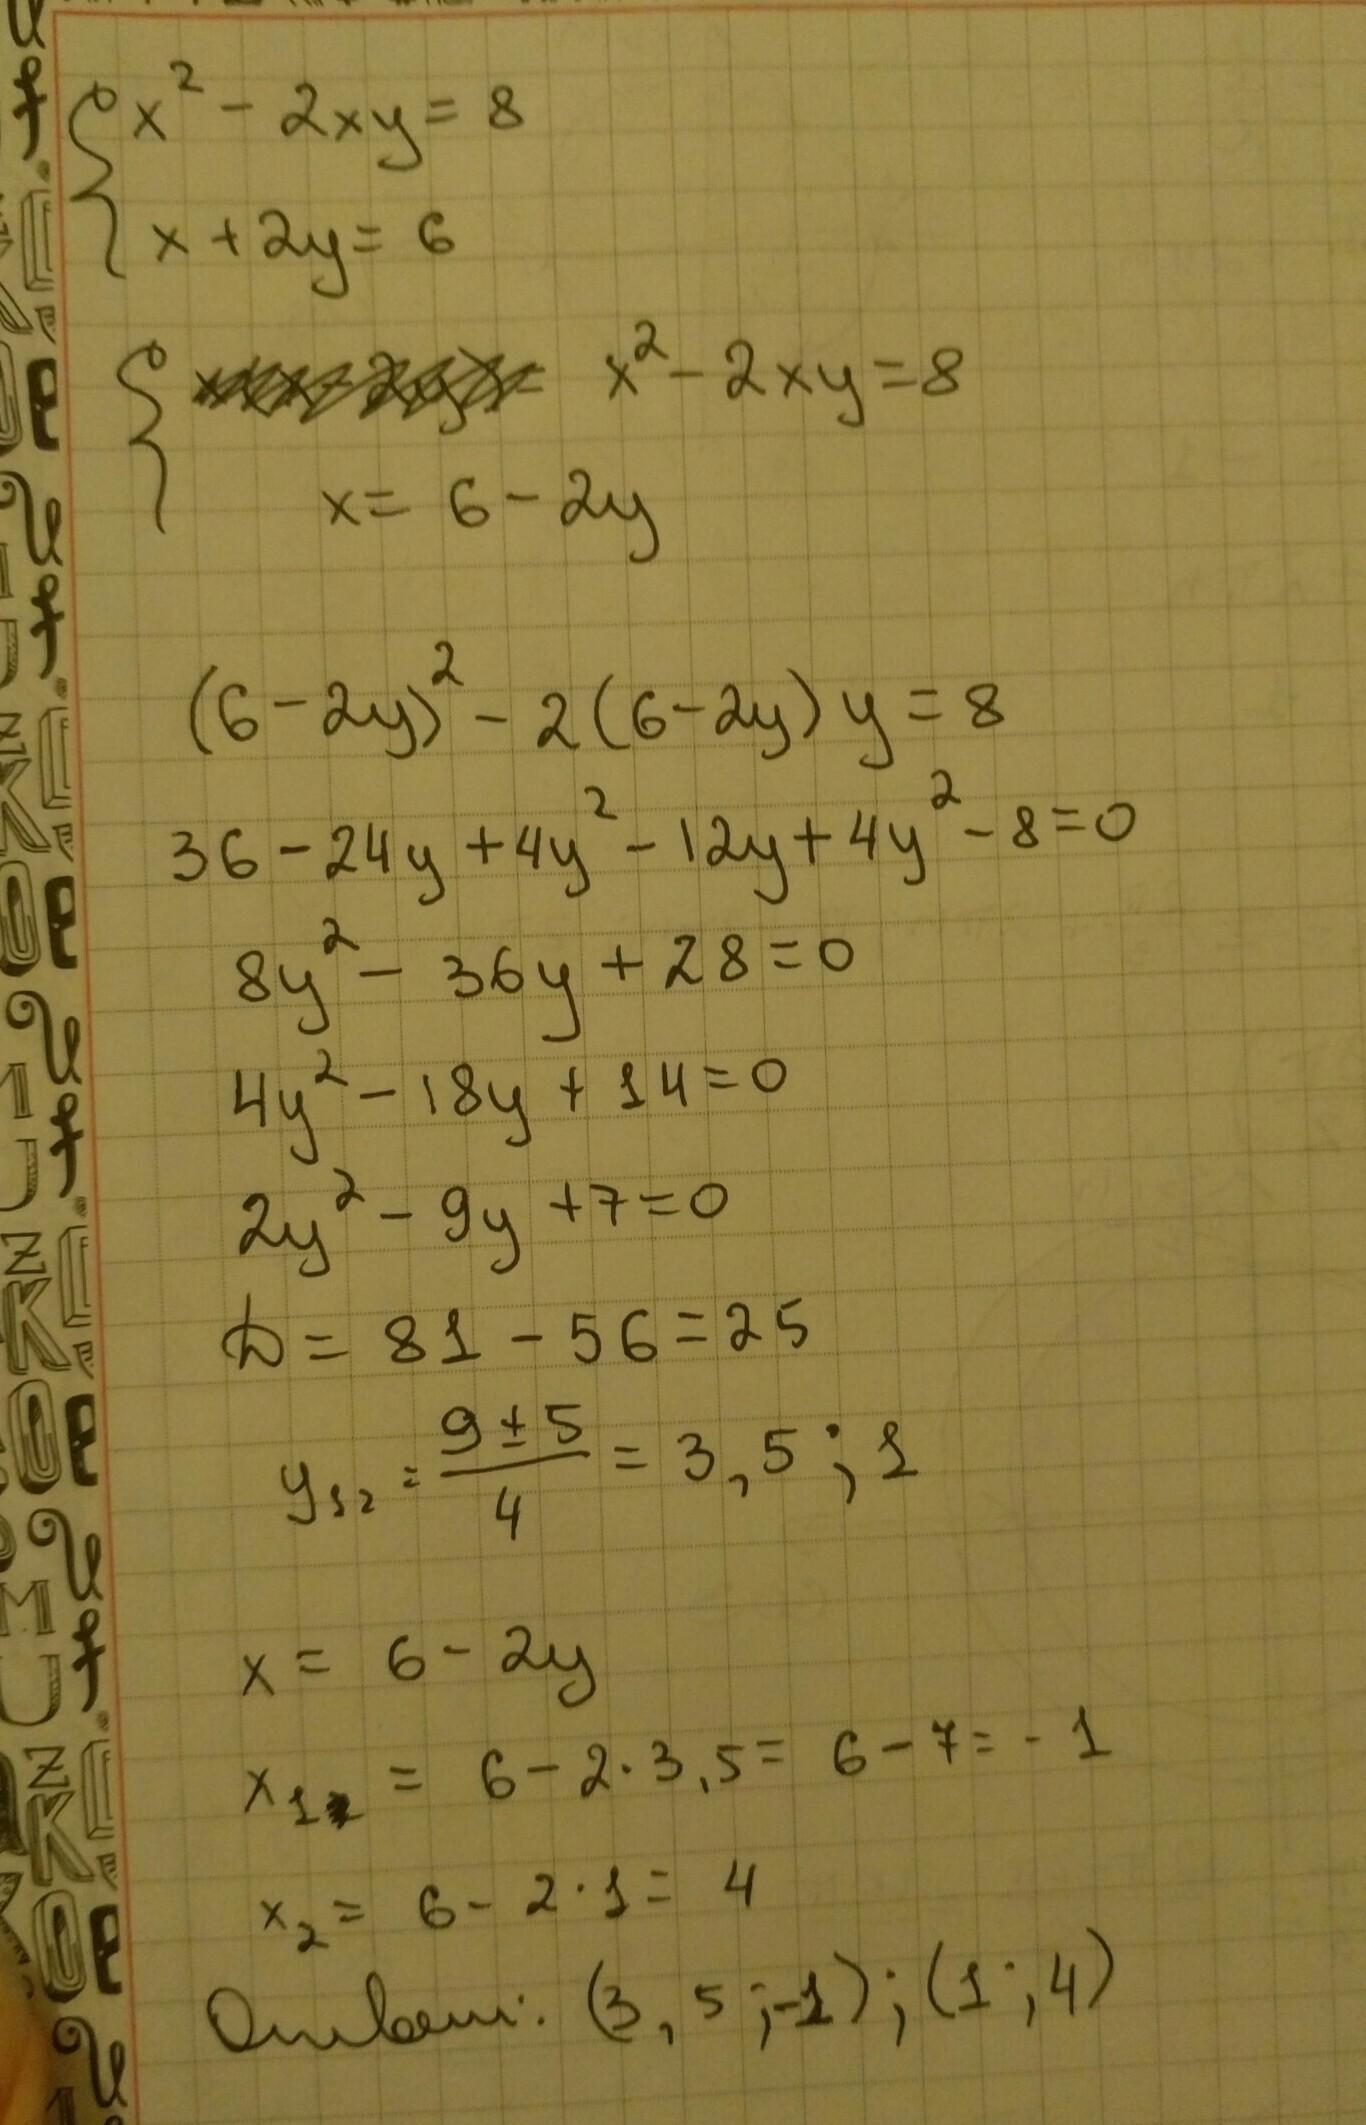 x² - 2xy = 8
x + 2y = 6
x² - 2xy = 8
x = 6 - 2y
(6 - 2y)² - 2(6 - 2y)y = 8
36 - 24y + 4y² - 12y + 4y² - 8 = 0
8y² - 36y + 28 = 0
4y² - 18y + 14 = 0
2y² - 9y + 7 = 0
D = 81 - 56 = 25
y₁₂ = (9 ± 5)/4 = 3,5 ; 1
x = 6 - 2y
x₁ = 6 - 2·3,5 = 6 - 7 = -1
x₂ = 6 - 2·1 = 4
Ответ: (3,5 ; -1) ; (1 ; 4)